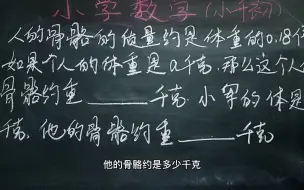 小学数学(小千初)
人的骨骼的质量约是体重的0.18倍
如果一个人的体重是a千克,那么这个人
骨骼约重____千克.小军的体是
千克,他的骨骼约重____千克
他的骨骼约是多少千克